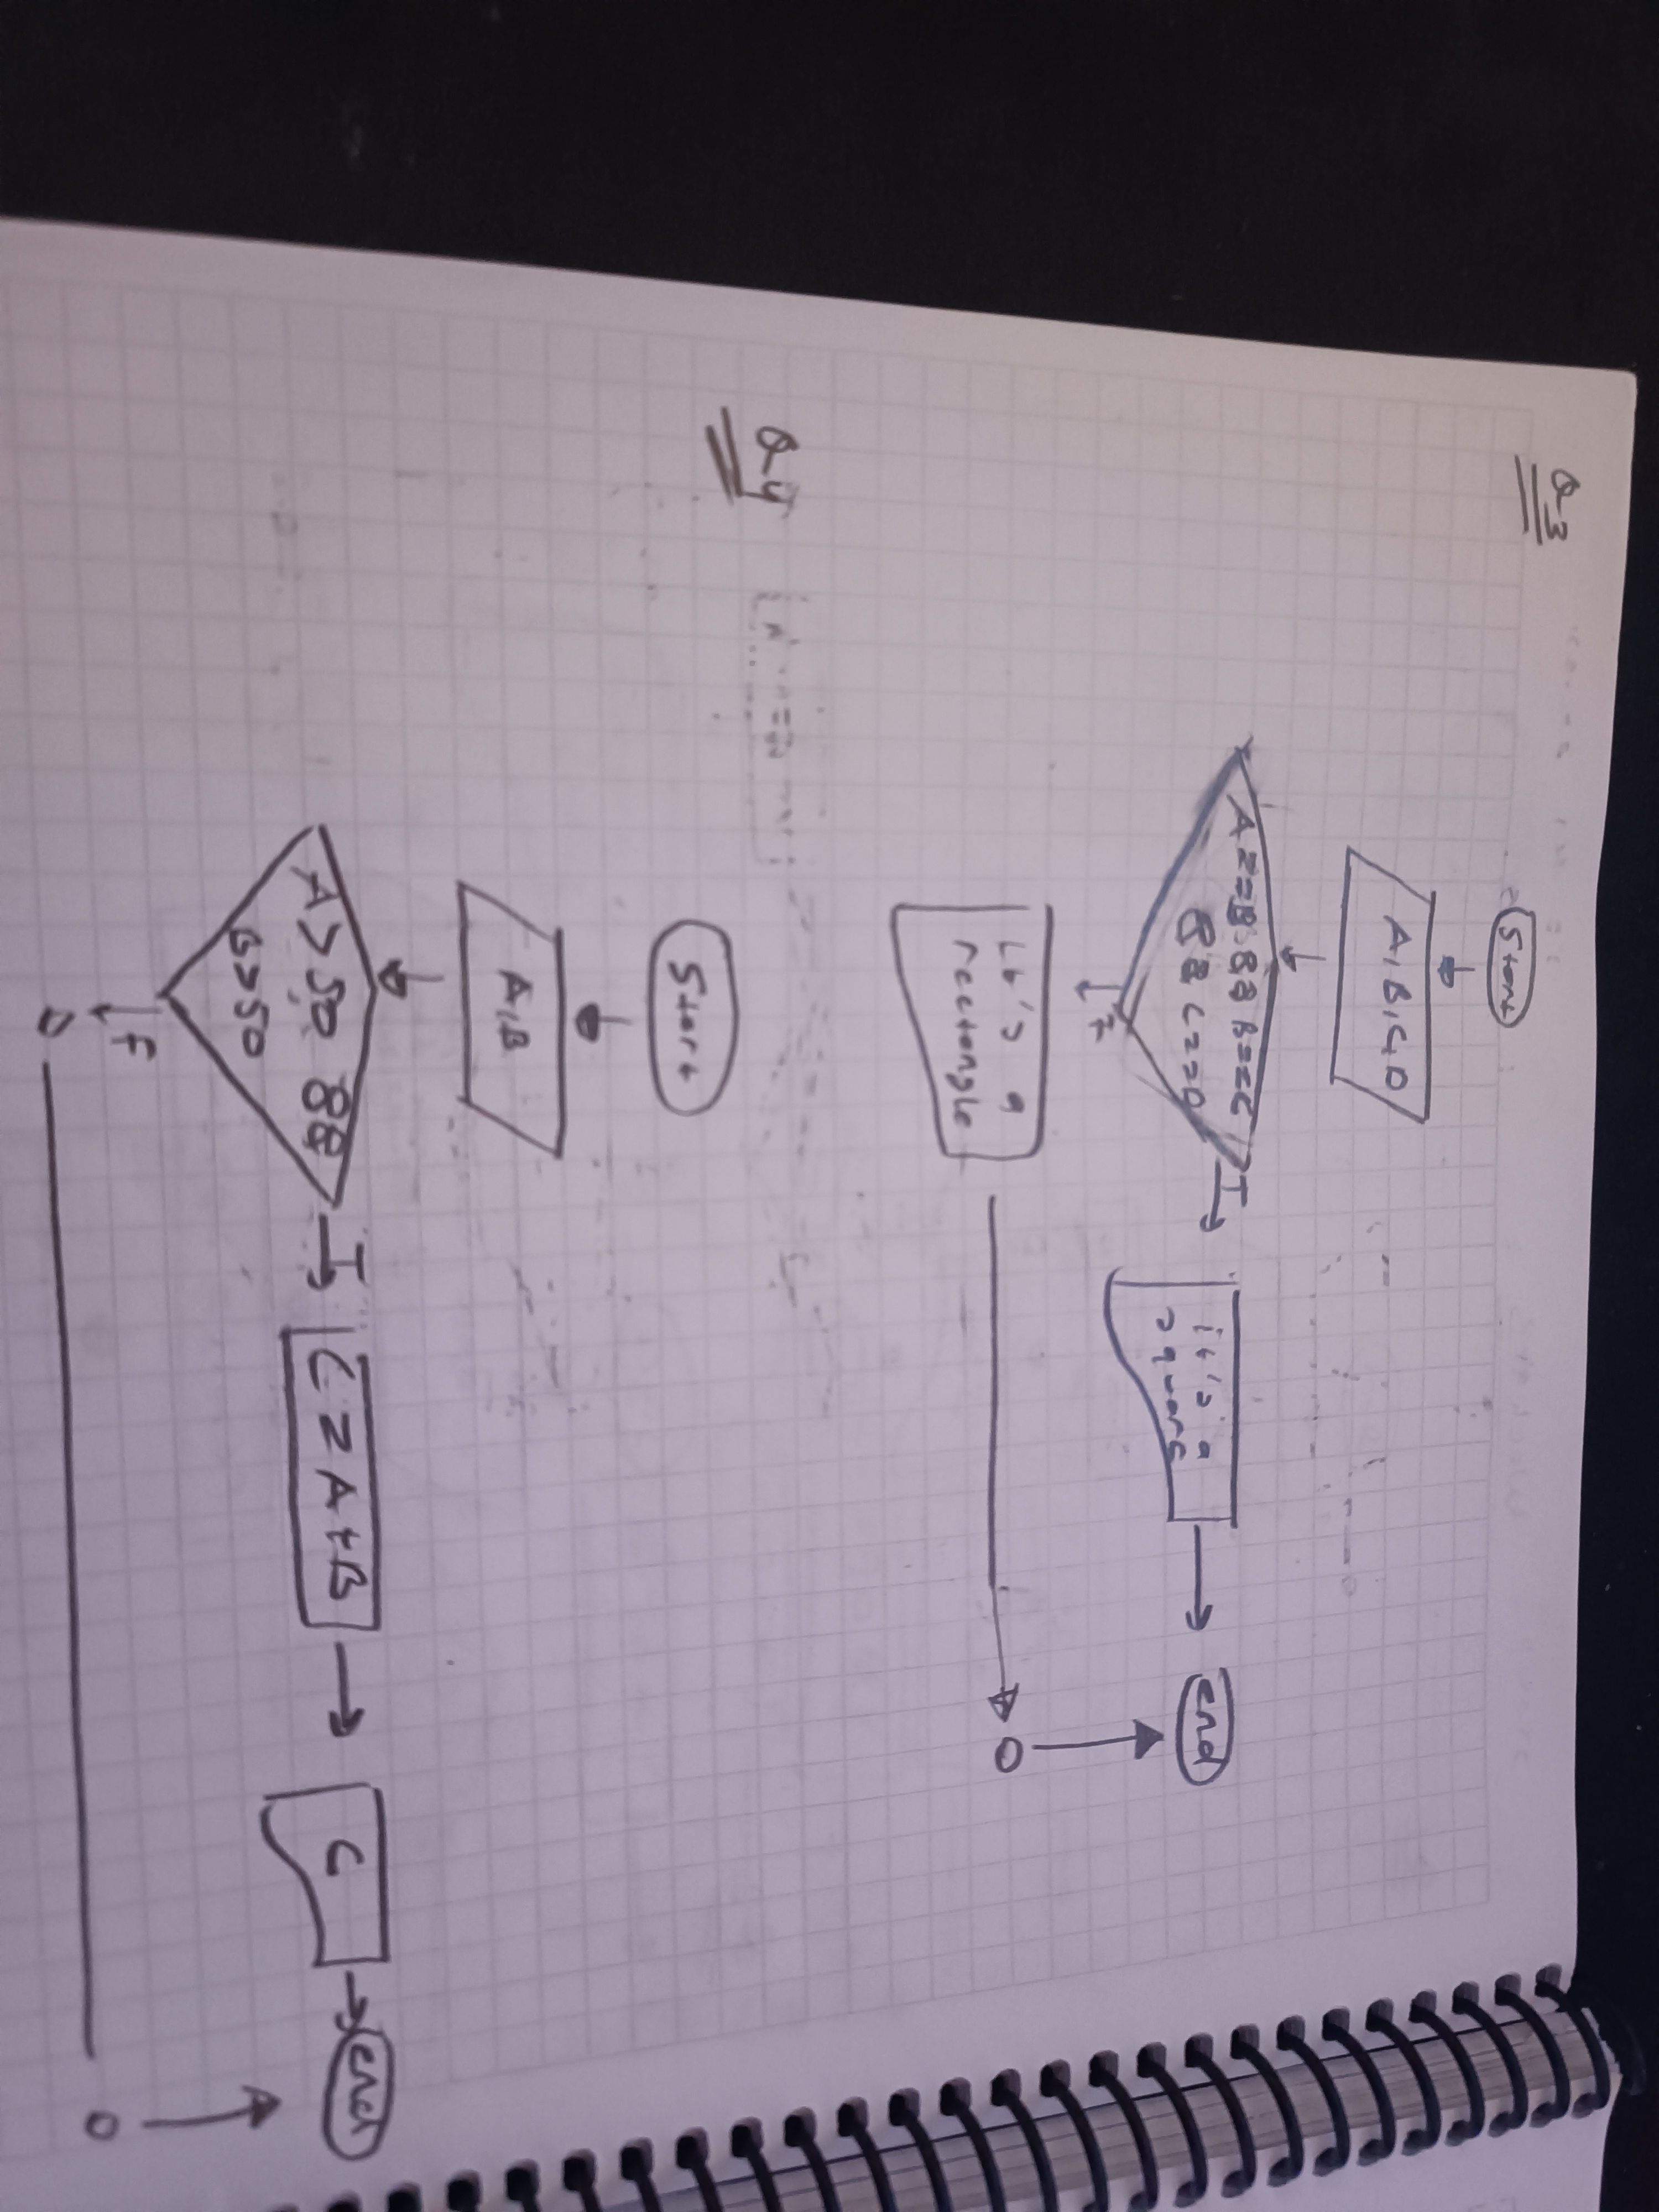 Q3
Start
A,B,C,D
A==B && B==C
&& C==D
T
It's a
square
end
F
It's a
rectangle
O
Q4
Start
A,B
A>50 &&
B>50
T
C = A+B
C
end
F
O
O